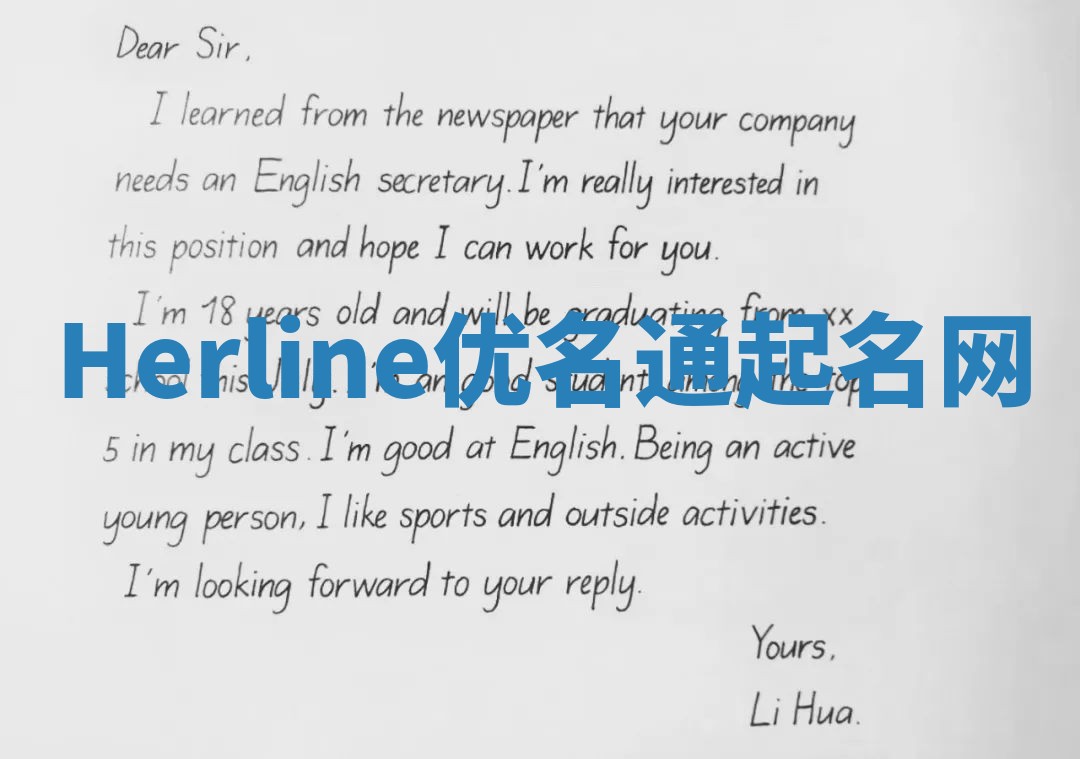 Dear Sir,
I learned from the newspaper that your company
needs an English secretary. I'm really interested in
this position and hope I can work for you.
I'm 18 years old and will be graduating from xx
Herline优名通起名网
school this July. I'm an good student among the top
5 in my class. I'm good at English. Being an active
young person, I like sports and outside activities.
I'm looking forward to your reply.
Yours,
Li Hua.